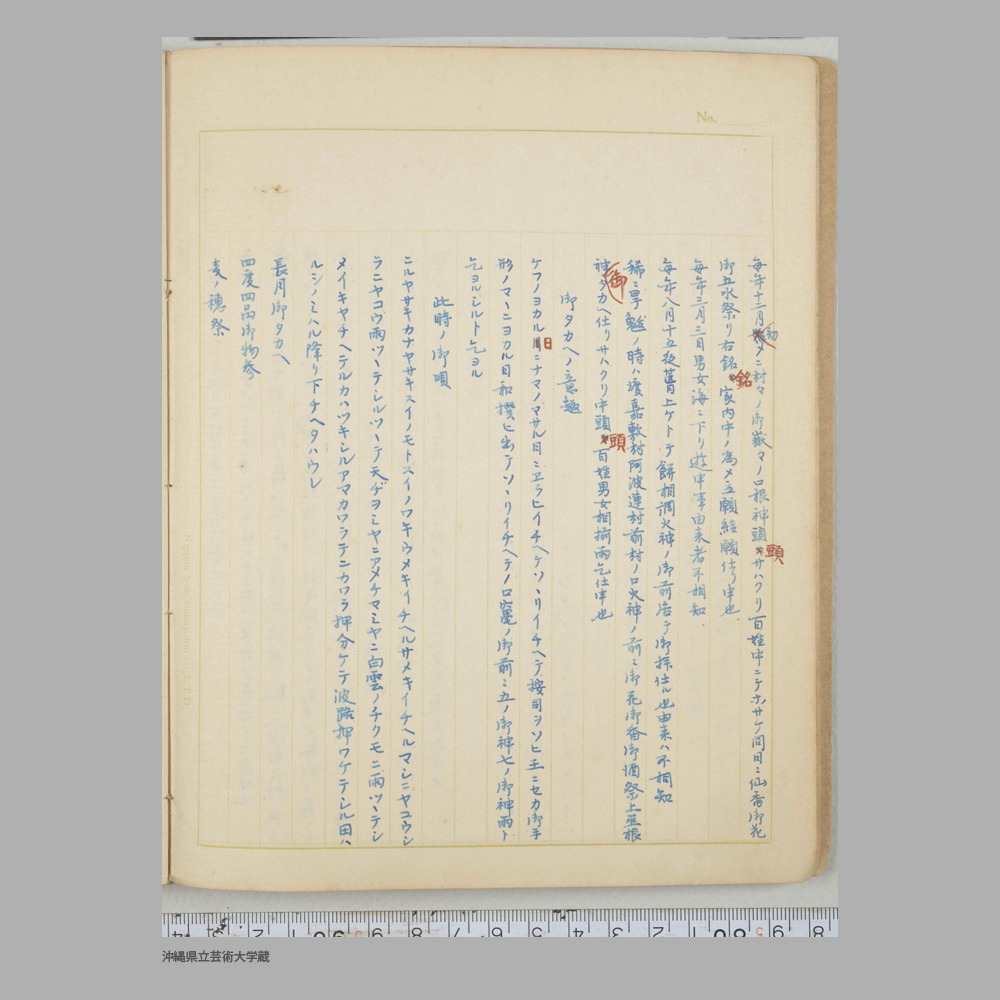 No.
毎年十二月初メタニ村々ノ御嶽マノロ根神頭サハクリ百姓中ニテホサケ同日ニ仙香御花
頭
御五水祭り右銘々家内中ノ為メ立願結願仕り申也
銘
毎年三月三日男女海ニ下リ遊申事由来者不相知.
毎年八月十五夜菖上ケトテ餅相調火神ノ御前居テ御拝仕ル也由来ハ不相知
稀ニ旱魃ノ時ハ渡嘉敷村阿波連村前村ノロ火神ノ前ニ御花御香御酒祭上並根
御
神タカヘ仕りサハクリ中頭百姓男女相揃雨乞仕申也
頭
御タカヘノ意趣
ケフノヨカル日ニナマノマサル日ニヱラヒイチヘケソヽリイチヘテ按司ヲソヒ王ニセカ御手
形ノマニヨカル日和撰ヒ出テソヽリイチヘテノロ竃ノ御前ニ五ノ御神七ノ御神雨ト
乞ヨルシルト乞ヨル
此時ノ御唄
ニルヤサキカナヤサキスイノモトスイノワキウメキイチヘルサメキイチヘルマシニヤコウシ
ラニヤコウ雨ツヽテシルツヽテ天ヂヨミヤニアメケマミヤニ白雲ノチクモニ雨ツヽテシ
メイキヤチヘテルカハツキシルアマカワラテニカワラ押分ケテ波路押ワケテシル田ハ
ルシノミハル降り下チヘタハウレ
長月御タカヘ
四度四品御物参
麦ノ穂祭
沖縄県立芸術大学蔵